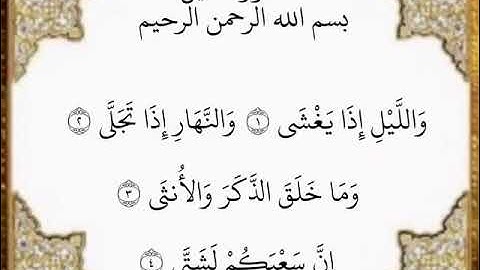 بسم الله الرحمن الرحيم
وَاللَّيْلِ إِذَا يَغْشَى ١ وَالنَّهَارِ إِذَا تَجَلَّى ٢
وَمَا خَلَقَ الذَّكَرَ وَالأُنثَى ٣
إِنَّ سَعْيَكُمْ لَشَتَّى ٤